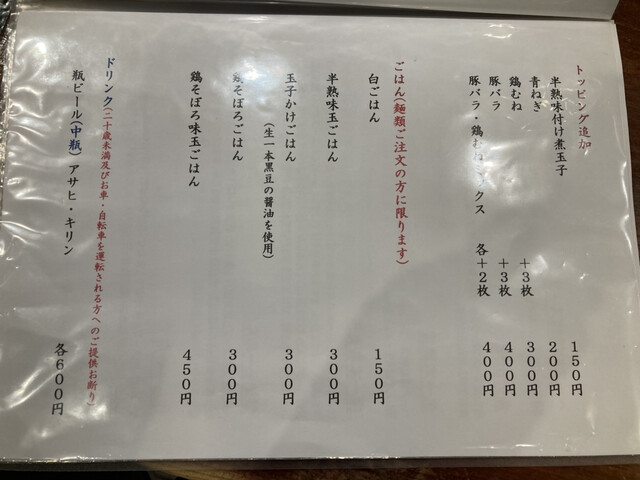 トッピング追加
半熟味付け煮玉子 150円
青ねぎ 200円
鶏むね +3枚 300円
豚バラ +3枚 400円
豚バラ・鶏むねミックス 各+2枚 400円
ごはん(麺類ご注文の方に限ります)
白ごはん 150円
半熟味玉ごはん 300円
玉子かけごはん 300円
(生一本黒豆の醤油を使用)
鶏そぼろごはん 300円
鶏そぼろ味玉ごはん 450円
ドリンク(二十歳未満及びお車・自転車を運転される方へのご提供お断り)
瓶ビール(中瓶) アサヒ・キリン 各600円